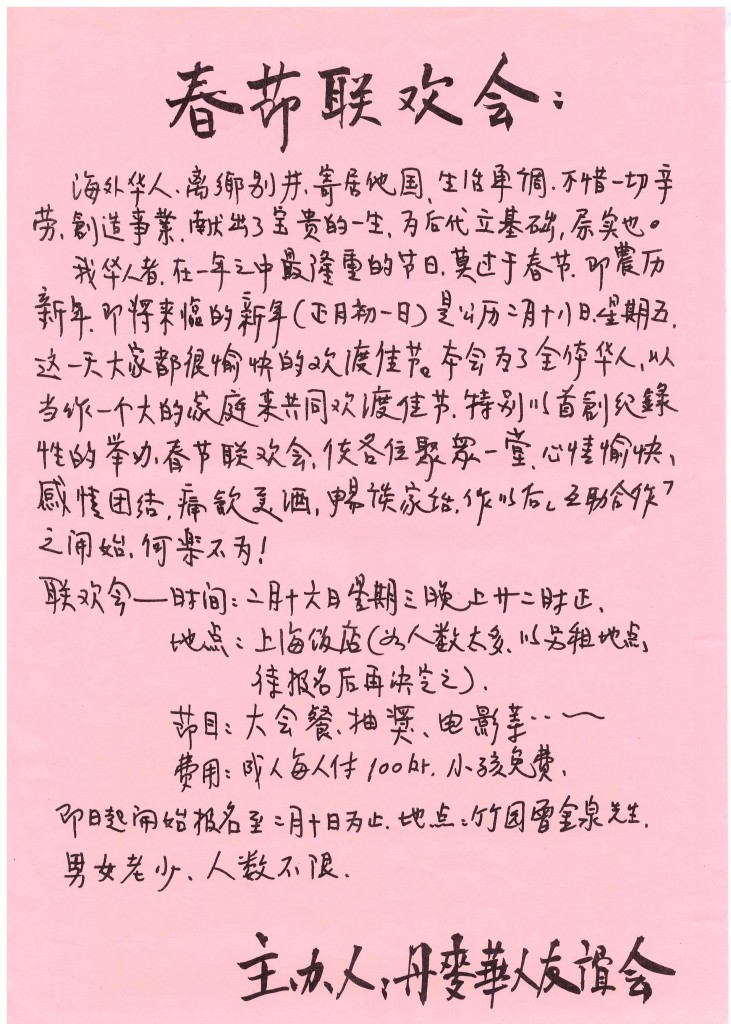 春节联欢会：
海外华人、离鄉别井、寄居他国、生活单调、不惜一切辛
劳、創造事業、献出了宝贵的一生、为后代立基础，属实也。
我华人者、在一年之中最隆重的节日、莫过于春节、即農历
新年、即将来临的新年（正月初一日）是公历二月十八日、星期五、
这一天大家都很愉快的欢渡佳节。本会为了全体华人、以
当作一个大的家庭来共同欢渡佳节、特别以首創纪録
性的举办、春节联欢会、使各位聚眾一堂、心情愉快、
感情团结、痛飲美酒、暢谈家话、作以后「互助合作」
之開始、何楽不为！
联欢会——时间：二月十六日星期三晚上廿二时正、
地点：上海饭店（如人数太多、以另租地点、
待报名后再决定之）.
节目：大会餐、抽奖、电影等……
费用：成人每人付100kr. 小孩免费、
即日起開始报名至二月十日为止、地点：竹园曾金泉先生.
男女老少、人数不限.
主办人：丹麥華人友誼会